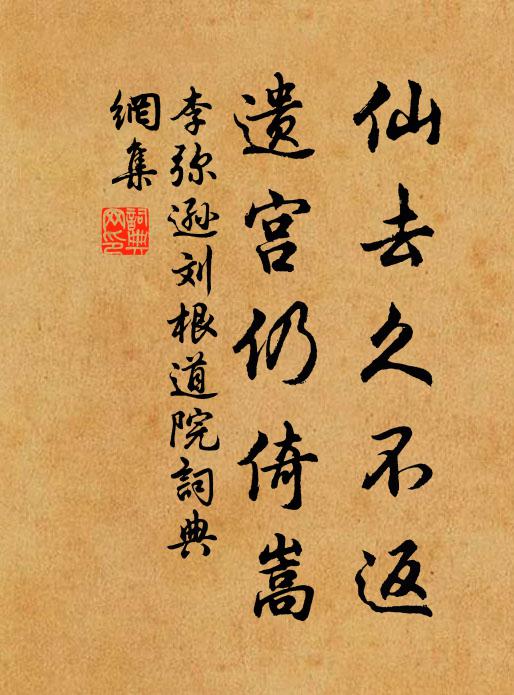 仙去久不返
遗宫仍倚嵩
李弥逊刘根道院词典
網集
詞典網印